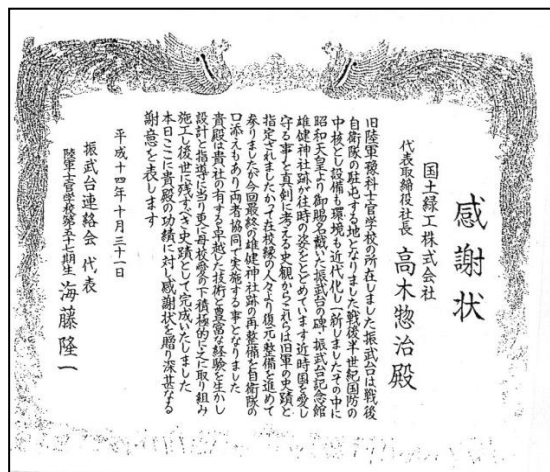 感謝状
国土緑工株式会社
代表取締役社長 高木惣治殿
旧陸軍豫科士官学校の所在しました振武台は戦後
自衛隊の駐屯する地となりました戦後半世紀国防の
中核とし設備も環境も近代化し一新しましたその中に
昭和天皇より御賜名戴いた振武台の碑・振武台記念館
雄健神社跡が往時の姿をとどめています近時国を愛し
守る事を真剣に考える史観からこれらは旧軍の史蹟と
指定されましたかつて在校縁の人々より復元・整備を進めて
参りましたが今回最終の雄健神社跡の再整備を自衛隊の
口添えもあり両者協同て実施する事となりました
貴殿は貴社の有する卓越した技術と豊富な経験を生かし
設計と指導に当り更に母校愛の下積極的に之に取り組み
施工し後世に残すべき史蹟として完成いたしました
本日ここに貴殿の功績に対し感謝状を贈り深甚なる
謝意を表します
平成十四年十月三十一日
振武台連絡会 代表
陸軍士官学校第五七期生 海藤隆一